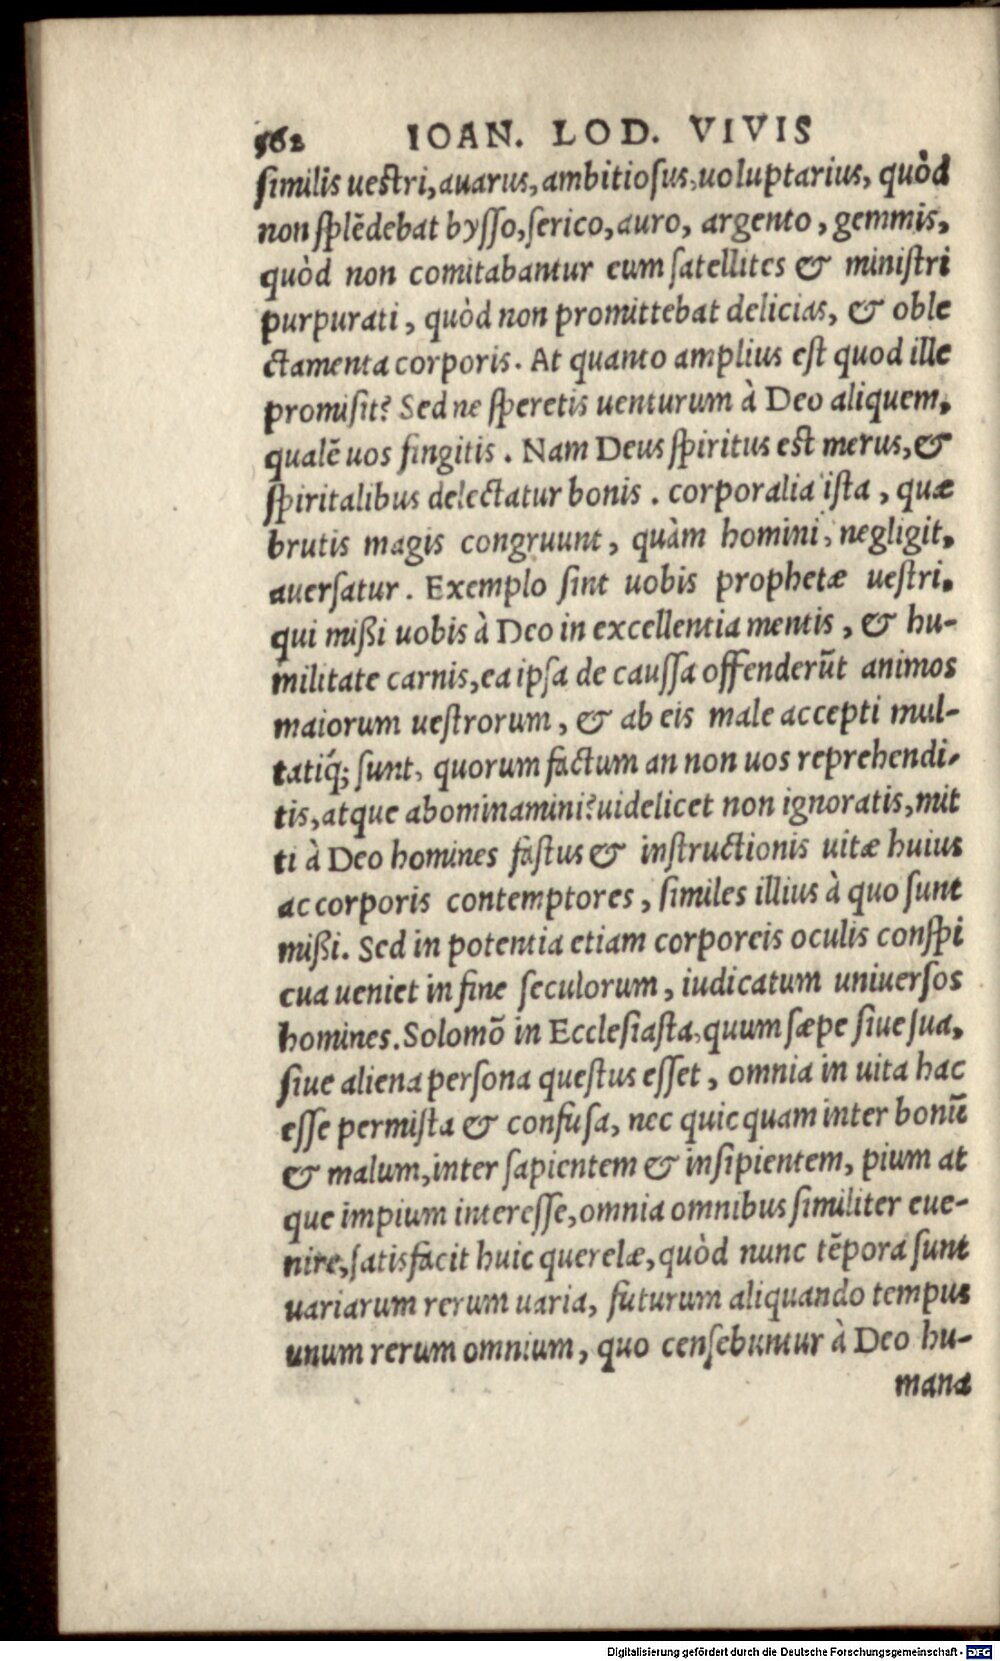 562 IOAN. LOD. VIVIS
ſimilis ueſtri, auarus, ambitioſus, uoluptarius, quòd
non ſplẽdebat byſſo, ſerico, auro, argento, gemmis,
quòd non comitabantur eum ſatellites & miniſtri
purpurati, quòd non promittebat delicias, & oble
ctamenta corporis. At quanto amplius eſt quod ille
promiſit? Sed ne ſperetis uenturum à Deo aliquem,
qualẽ uos fingitis. Nam Deus ſpiritus eſt merus, &
ſpiritalibus delectatur bonis. corporalia iſta, quæ
brutis magis congruunt, quàm homini, negligit,
auerſatur. Exemplo ſint uobis prophetæ ueſtri,
qui mißi uobis à Deo in excellentia mentis, & hu-
militate carnis, ea ipſa de cauſſa offenderũt animos
maiorum ueſtrorum, & ab eis male accepti mul-
tatiq́; ſunt, quorum factum an non uos reprehendi-
tis, atque abominamini? uidelicet non ignoratis, mit
ti à Deo homines faſtus & inſtructionis uitæ huius
ac corporis contemptores, ſimiles illius à quo ſunt
mißi. Sed in potentia etiam corporeis oculis conſpi
cua ueniet in fine ſeculorum, iudicatum uniuerſos
homines. Solomõ in Eccleſiaſta, quum ſæpe ſiue ſua,
ſiue aliena perſona queſtus eſſet, omnia in uita hac
eſſe permiſta & confuſa, nec quicquam inter bonũ
& malum, inter ſapientem & inſipientem, pium at
que impium intereſſe, omnia omnibus ſimiliter eue-
nire, ſatisfacit huic querelæ, quòd nunc tẽpora ſunt
uariarum rerum uaria, futurum aliquando tempus
unum rerum omnium, quo cenſebuntur à Deo hu-
mana
Digitalisierung gefördert durch die Deutsche Forschungsgemeinschaft - DFG